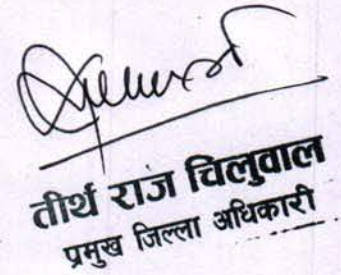 तीर्थ राज चिलुवाल
प्रमुख जिल्ला अधिकारी